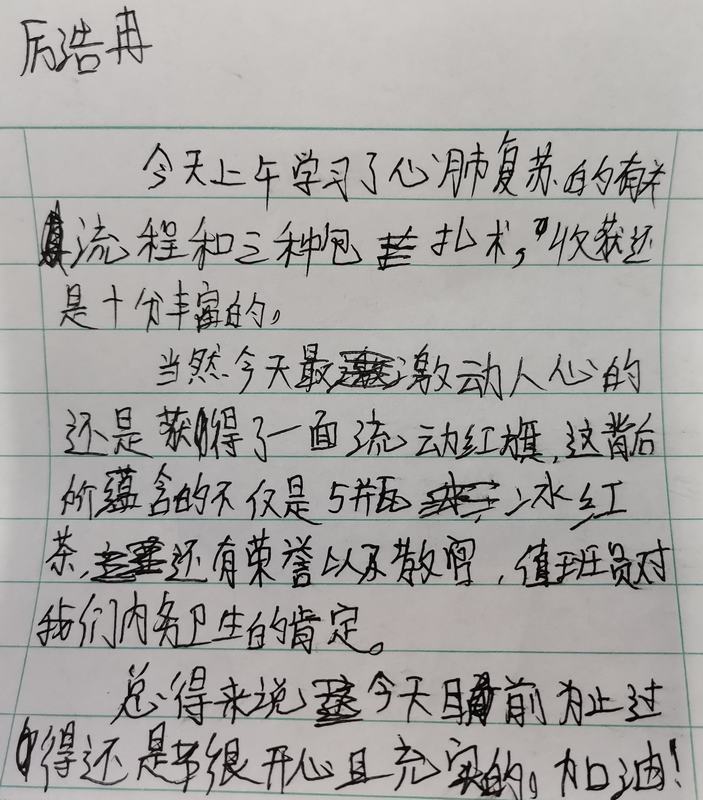 厉浩冉
今天上午学习了心肺复苏的有关
流程和三种包扎术,收获还
是十分丰富的。
当然今天最激动人心的
还是获得了一面流动红旗,这背后
所蕴含的不仅是5瓶冰红
茶,还有荣誉以及教官,值班员对
我们内务卫生的肯定。
总得来说今天目前为止过
得还是很开心且充实的。加油!